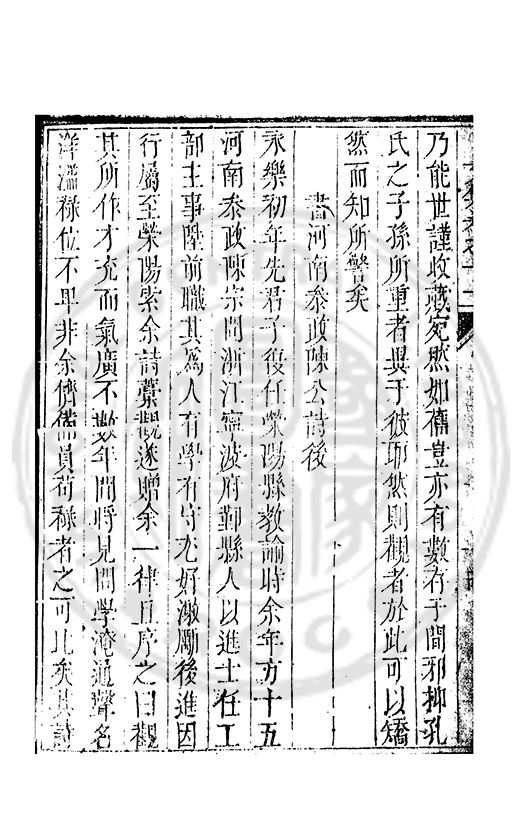 乃能世謹收藏宛然如舊豈亦有數存于間邪抑孔
氏之子孫所重者異于彼耶然則觀者於此可以矯
然而知所警矣
書河南叅政陳公詩後
永樂初年先君子復任滎陽縣教諭時余年方十五
河南叅政陳宗問浙江寧波府鄞縣人以進士任工
部主事陞前職其為人有學有守尤好激勵後進因
行屬至滎陽索余詩藁觀遂贈余一律且序之曰觀
其所作才充而氣廣不數年間將見問學淹通聲名
洋溢祿位不畀非余儕備員荷祿者之可比矣其詩